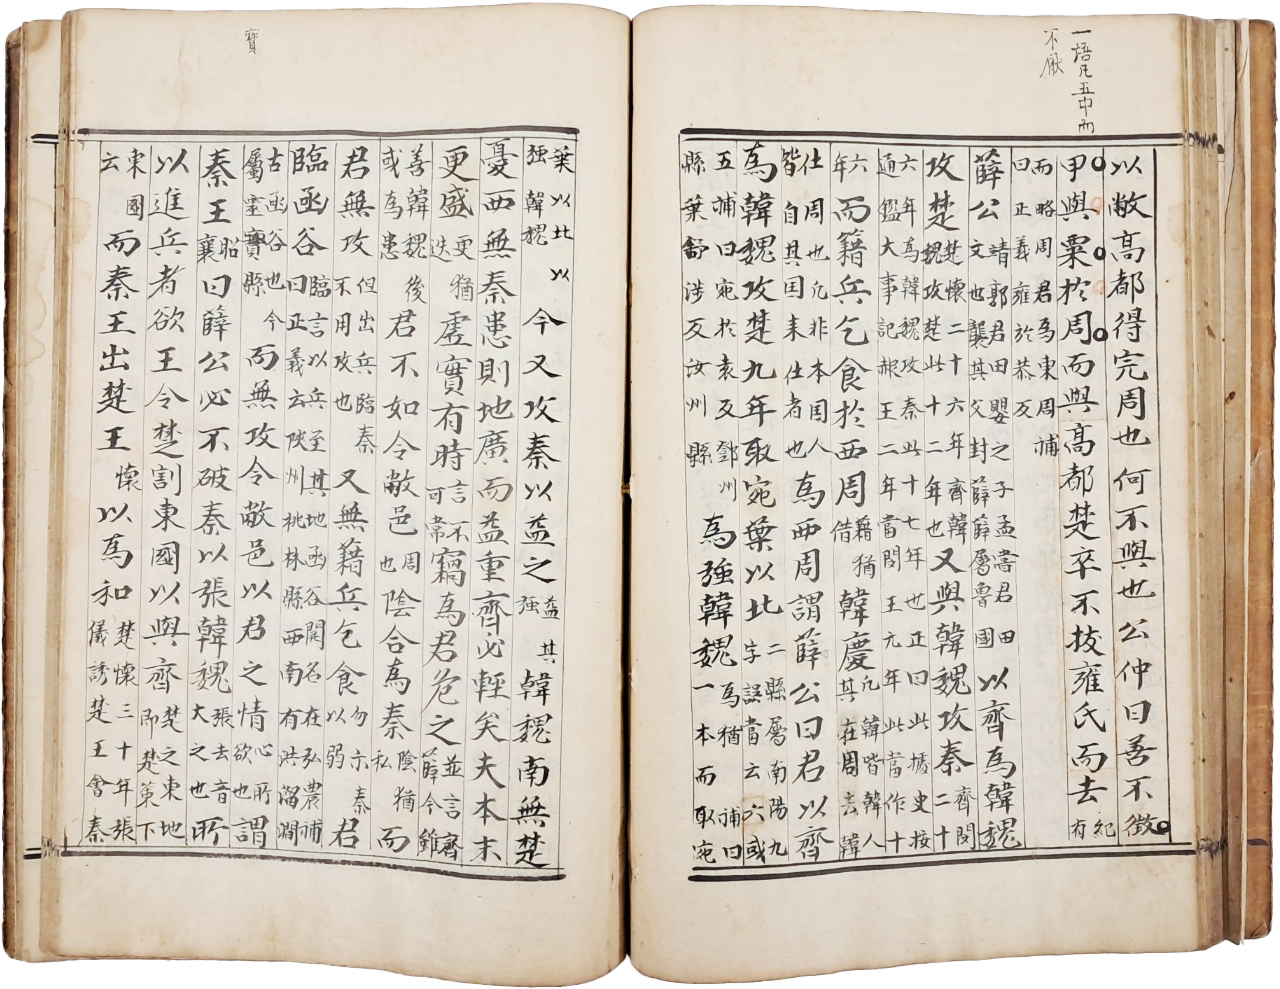 一語凡五中而
不厭
以敝高都得完周也何不與也公仲曰善不徵
甲與粟於周而與高都楚卒不拔雍氏而去紀有
而略周君為東周補
曰正義雍於恭反
薛公靖郭君田嬰之子孟嘗君田文也襲其父封薛薛屬魯國以齊為韓魏
攻楚楚懷二十六年齊韓魏攻楚此十二年也又與韓魏攻秦齊閔二十
六年為韓魏攻秦此十七年也正曰此據史按
通鑑大事記赧王二年當閔王元年此當作十
六年而籍兵乞食於西周籍猶借韓慶凡韓皆韓人其在周去韓
仕周也凡非本国人皆自其国来仕者也為西周謂薛公曰君以齊
為韓魏攻楚九年取宛葉以北二縣屬南陽九字誤當云六或
五補曰宛於袁反鄧州縣葉舒涉反汝州縣為強韓魏為猶補曰一本而取宛
寶
葉以北以強韓魏今又攻秦以益之益其強韓魏南無楚
憂西無秦患則地廣而益重齊必輕矣夫本末
更盛更猶迭虛實有時言不可常竊為君危之並言齊薛今雖
善韓魏後或為患君不如令敝邑周也陰合為秦陰猶私而
君無攻但出兵臨秦不用攻也又無籍兵乞食勿示秦以弱君
臨函谷臨言以兵至其地函谷關名在弘農補曰正義云陝州桃林縣西南有洪溜澗
古函谷也今屬靈寶縣而無攻令敝邑以君之情心所欲也謂
秦王昭襄曰薛公必不破秦以張韓魏張去音大之也所
以進兵者欲王令楚割東國以與齊楚之東地即楚策下
東國云而秦王出楚王懷以為和楚懷三十年張儀誘楚王會秦